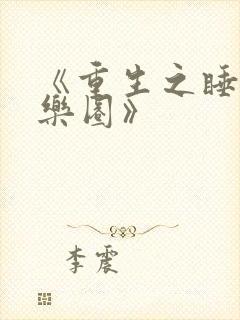 《重生之睡
樂園》
李震